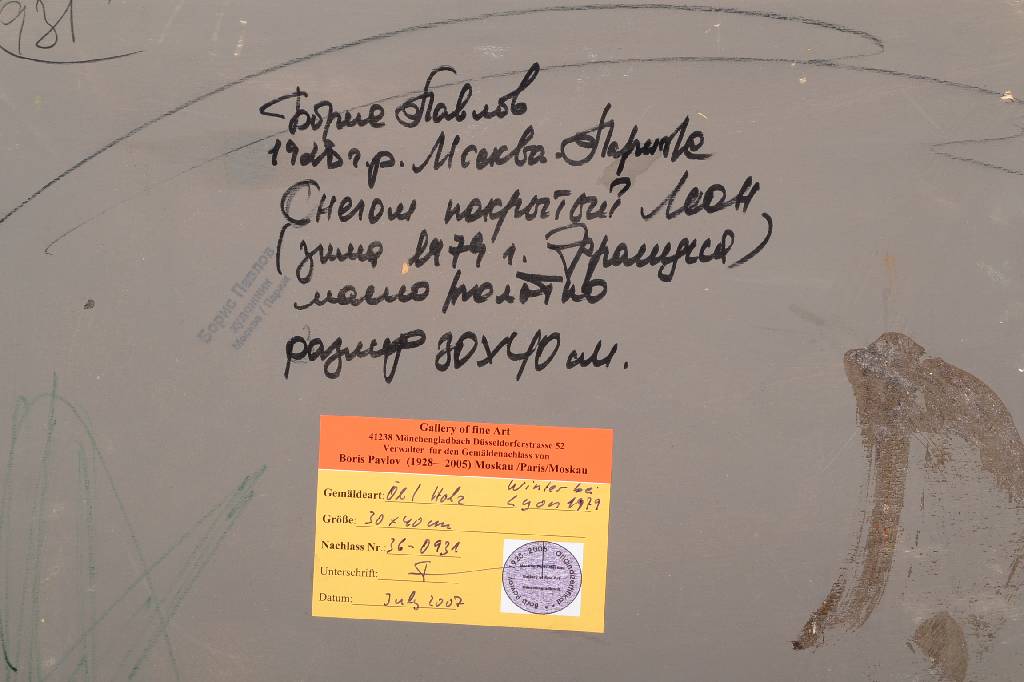 931
Борис Павлов
1928 г.р. Москва. Париж
Снегом покрытый Леон
(зима 1979 г. Франция)
масло полотно
размер 30X40 см.
Борис Павлов
художник
Москва / Париж
Gallery of fine Art
41238 Mönchengladbach Düsseldorferstrasse 52
Verwalter für den Gemäldenachlass von
Boris Pavlov (1928– 2005) Moskau /Paris/Moskau
Gemäldeart: Öhl Holz Winter bei
Lyon 1979
Größe: 30 x 40 cm
Nachlass Nr.: 36-0931
Unterschrift:
Datum: July 2007